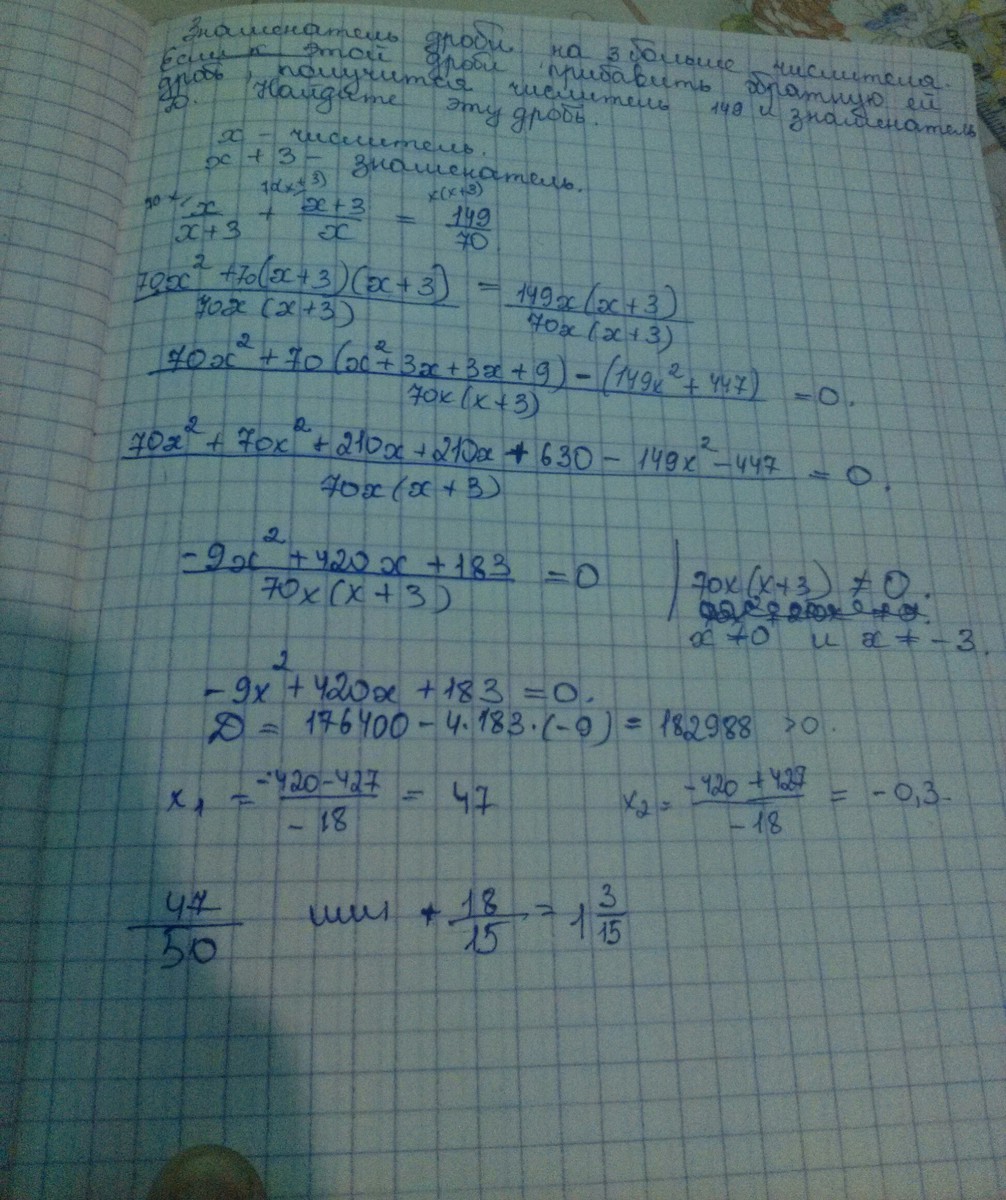 Знаменатель дроби на 3 больше числителя.
Если к этой дроби прибавить обратную ей
дробь, получится числитель 149 и знаменатель
70. Найдите эту дробь.
x - числитель.
x + 3 - знаменатель.
x/(x+3) + (x+3)/x = 149/70
(70x² + 70(x+3)(x+3))/(70x(x+3)) = 149x(x+3)/(70x(x+3))
(70x² + 70(x² + 3x + 3x + 9) - (149x² + 447))/(70x(x+3)) = 0.
(70x² + 70x² + 210x + 210x + 630 - 149x² - 447)/(70x(x+3)) = 0.
(-9x² + 420x + 183)/(70x(x+3)) = 0 | 70x(x+3) ≠ 0.
x ≠ 0 и x ≠ -3.
-9x² + 420x + 183 = 0.
D = 176400 - 4·183·(-9) = 182988 > 0.
x₁ = (-420-427)/(-18) = 47 x₂ = (-420+427)/(-18) = -0,3.
47/50 или 18/15 = 1 3/15